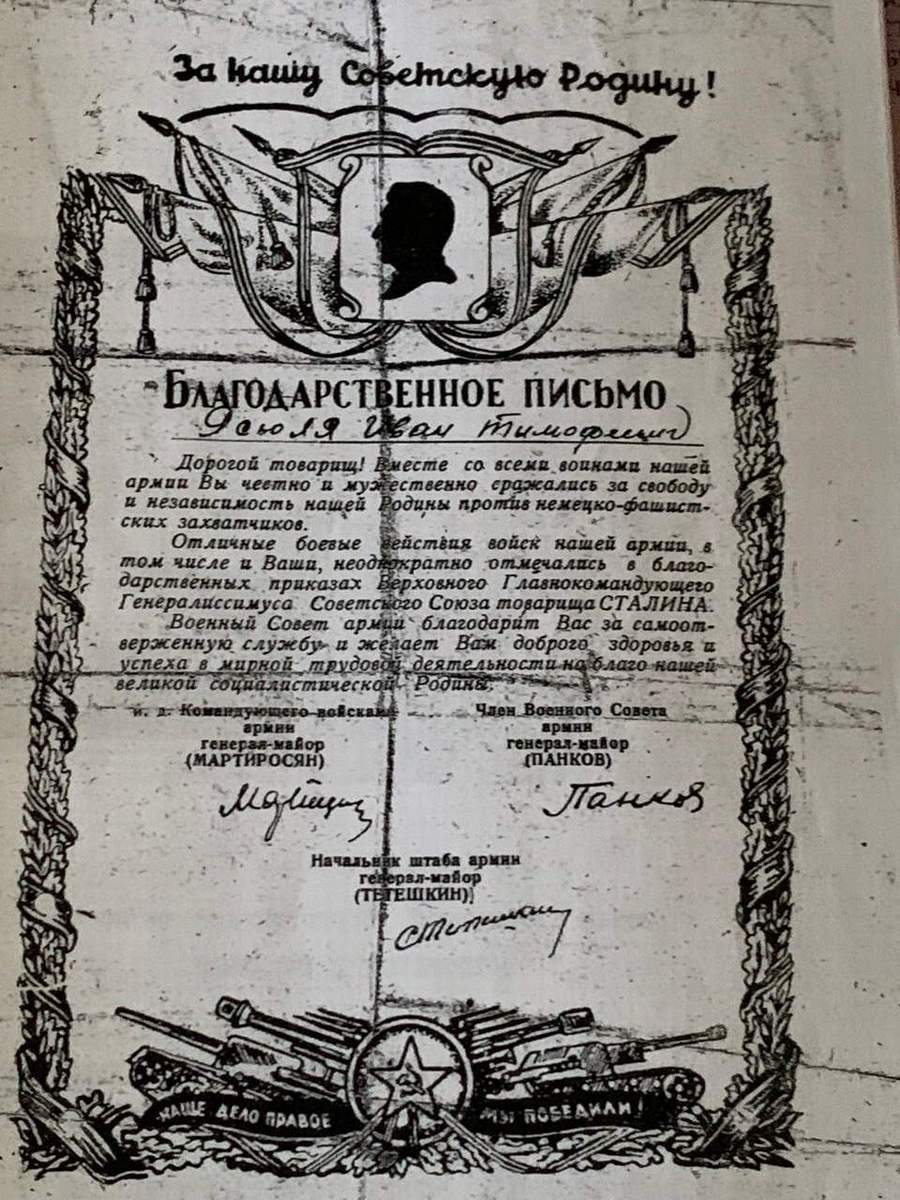 За нашу Советскую Родину!
БЛАГОДАРСТВЕННОЕ ПИСЬМО
Ясюля Иван Тимофеевич
Дорогой товарищ! Вместе со всеми воинами нашей
армии Вы честно и мужественно сражались за свободу
и независимость нашей Родины против немецко-фашист-
ских захватчиков.
Отличные боевые действия войск нашей армии, в
том числе и Ваши, неоднократно отмечались в благо-
дарственных приказах Верховного Главнокомандующего
Генералиссимуса Советского Союза товарища СТАЛИНА.
Военный Совет армии благодарит Вас за самоот-
верженную службу и желает Вам доброго здоровья и
успеха в мирной трудовой деятельности на благо нашей
великой социалистической Родины.
и. д. Командующего войсками
армии
генерал-майор
(МАРТИРОСЯН)
Член Военного Совета
армии
генерал-майор
(ПАНКОВ)
Панков
Начальник штаба армии
генерал-майор
(ТЕТЕШКИН)
НАШЕ ДЕЛО ПРАВОЕ
МЫ ПОБЕДИЛИ!